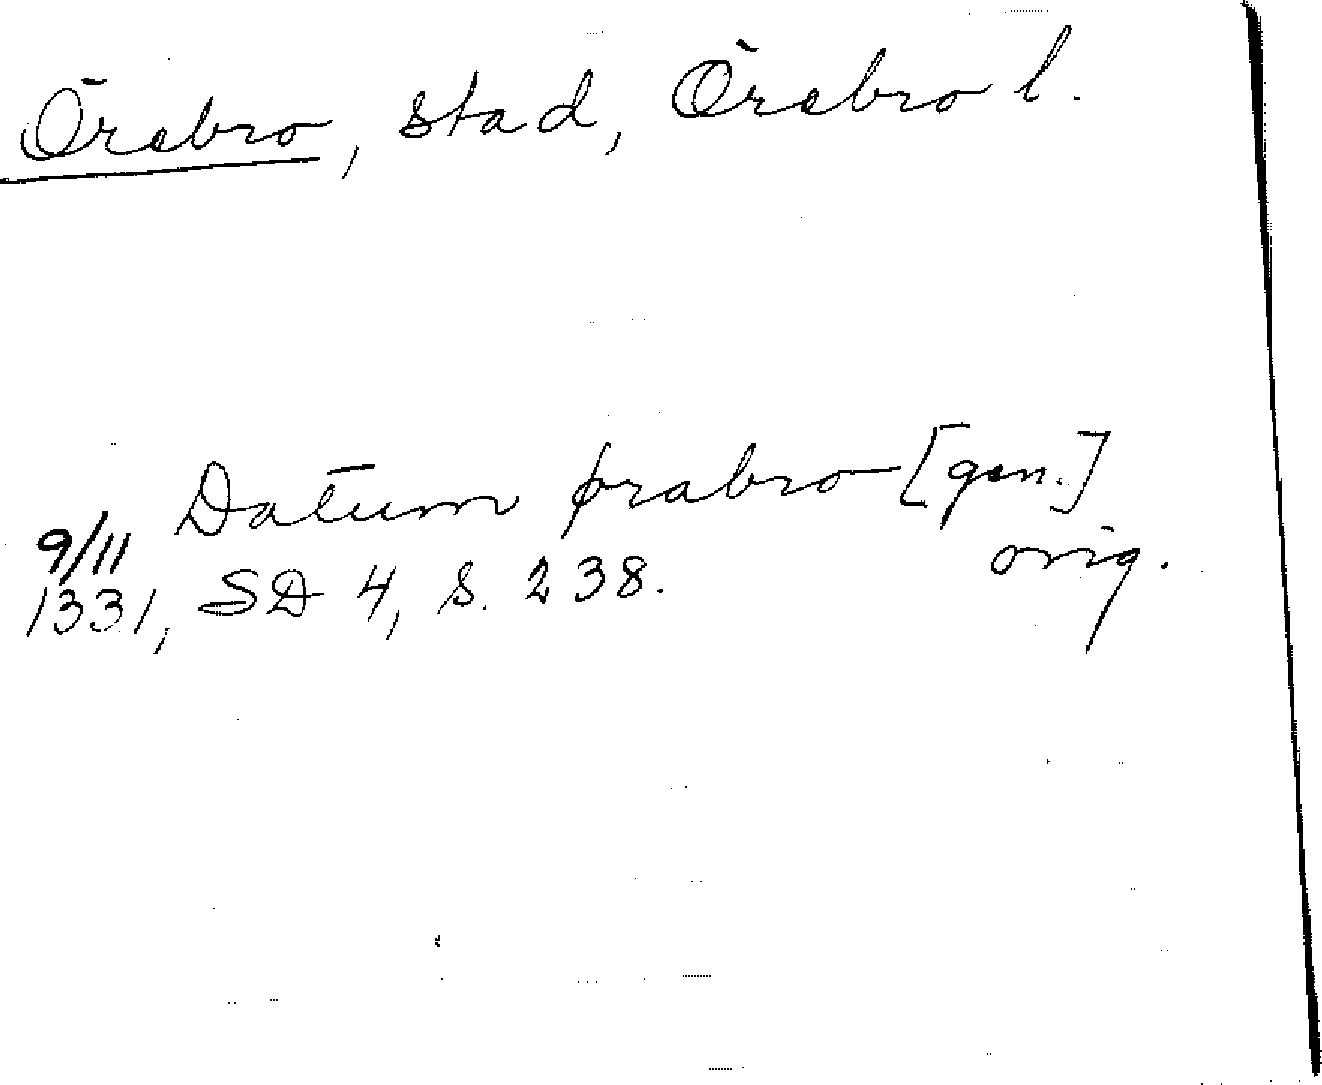 Örebro, stad, Örebro l.
Datum ørabro [gen.]
orig.
9/11
1331, SD 4, s. 238.